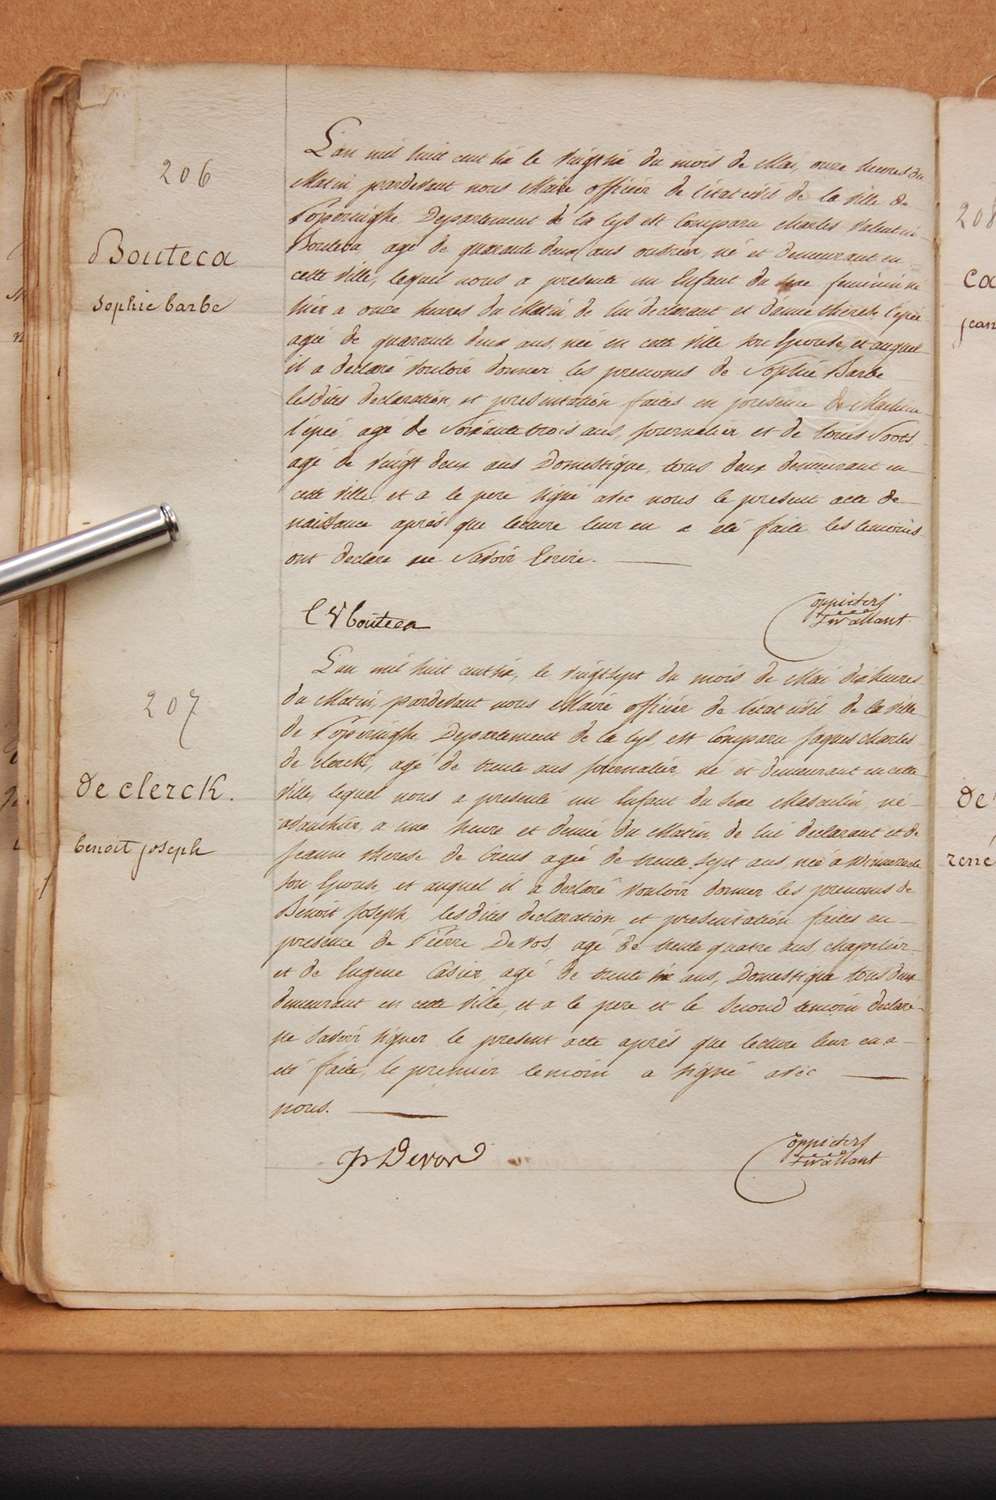 206
Bouteca
Sophie barbe
L'an mil huit cent six le vingt six du mois de Mai, onze heures du
Matin pardevant nous Maire officier de l'état civil de la ville de
Poperinghe Departement de la Lys est Comparu Charles Valentin
Bouteca, agé de quarante deux ans ouvrier, né et demeurant en
cette ville, lequel nous a presenté un Enfant du sexe feminin né
hier a onze heures du Matin de lui declarant et d'anne therese l'épée
agée de quarante deux ans, née en cette ville son Epouse, et auquel
il a declaré vouloir donner les prenoms de Sophie Barbe
lesdites declaration et presentation faites en presence de
l'épée agé de Soixante trois ans, journalier et de Louis Soots
agé de vingt deux ans Domestique, tous deux demeurant en
cette ville, et a le pere signé avec nous le present acte de
naissance après que lecture leur en a été faite les temoins
ont declaré ne Savoir Ecrire.
C V Bouteca
207
De clerck.
benoit joseph
L'an mil huit cent six, le vingt sept du mois de Mai dix heures
du Matin, pardevant nous Maire officier de l'état civil de la ville
de Poperinghe Departement de la Lys, est Comparu Jaques Charles
de Clerck, agé de trente ans journalier, né et demeurant en cette
ville, lequel nous a presenté un Enfant du sexe Masculin, né
avanthier, a une heure et demie du Matin de lui declarant et de
Jeanne therese de agée de trente sept ans née a
son Epouse, et auquel il a declaré vouloir donner les prenoms de
Benoit Joseph lesdites declaration et presentation faites en
presence de Pierre De vos, agé de trente quatre ans, chapelier
et de Eugene Casier, agé de trente six ans, Domestique tous deux
demeurant en cette ville, et a le pere et le Second temoin declaré
ne Savoir signer le present acte après que lecture leur en a
été faite, le premier temoin a signé avec
nous.
P Devos
208
Ca
jean
De
rené